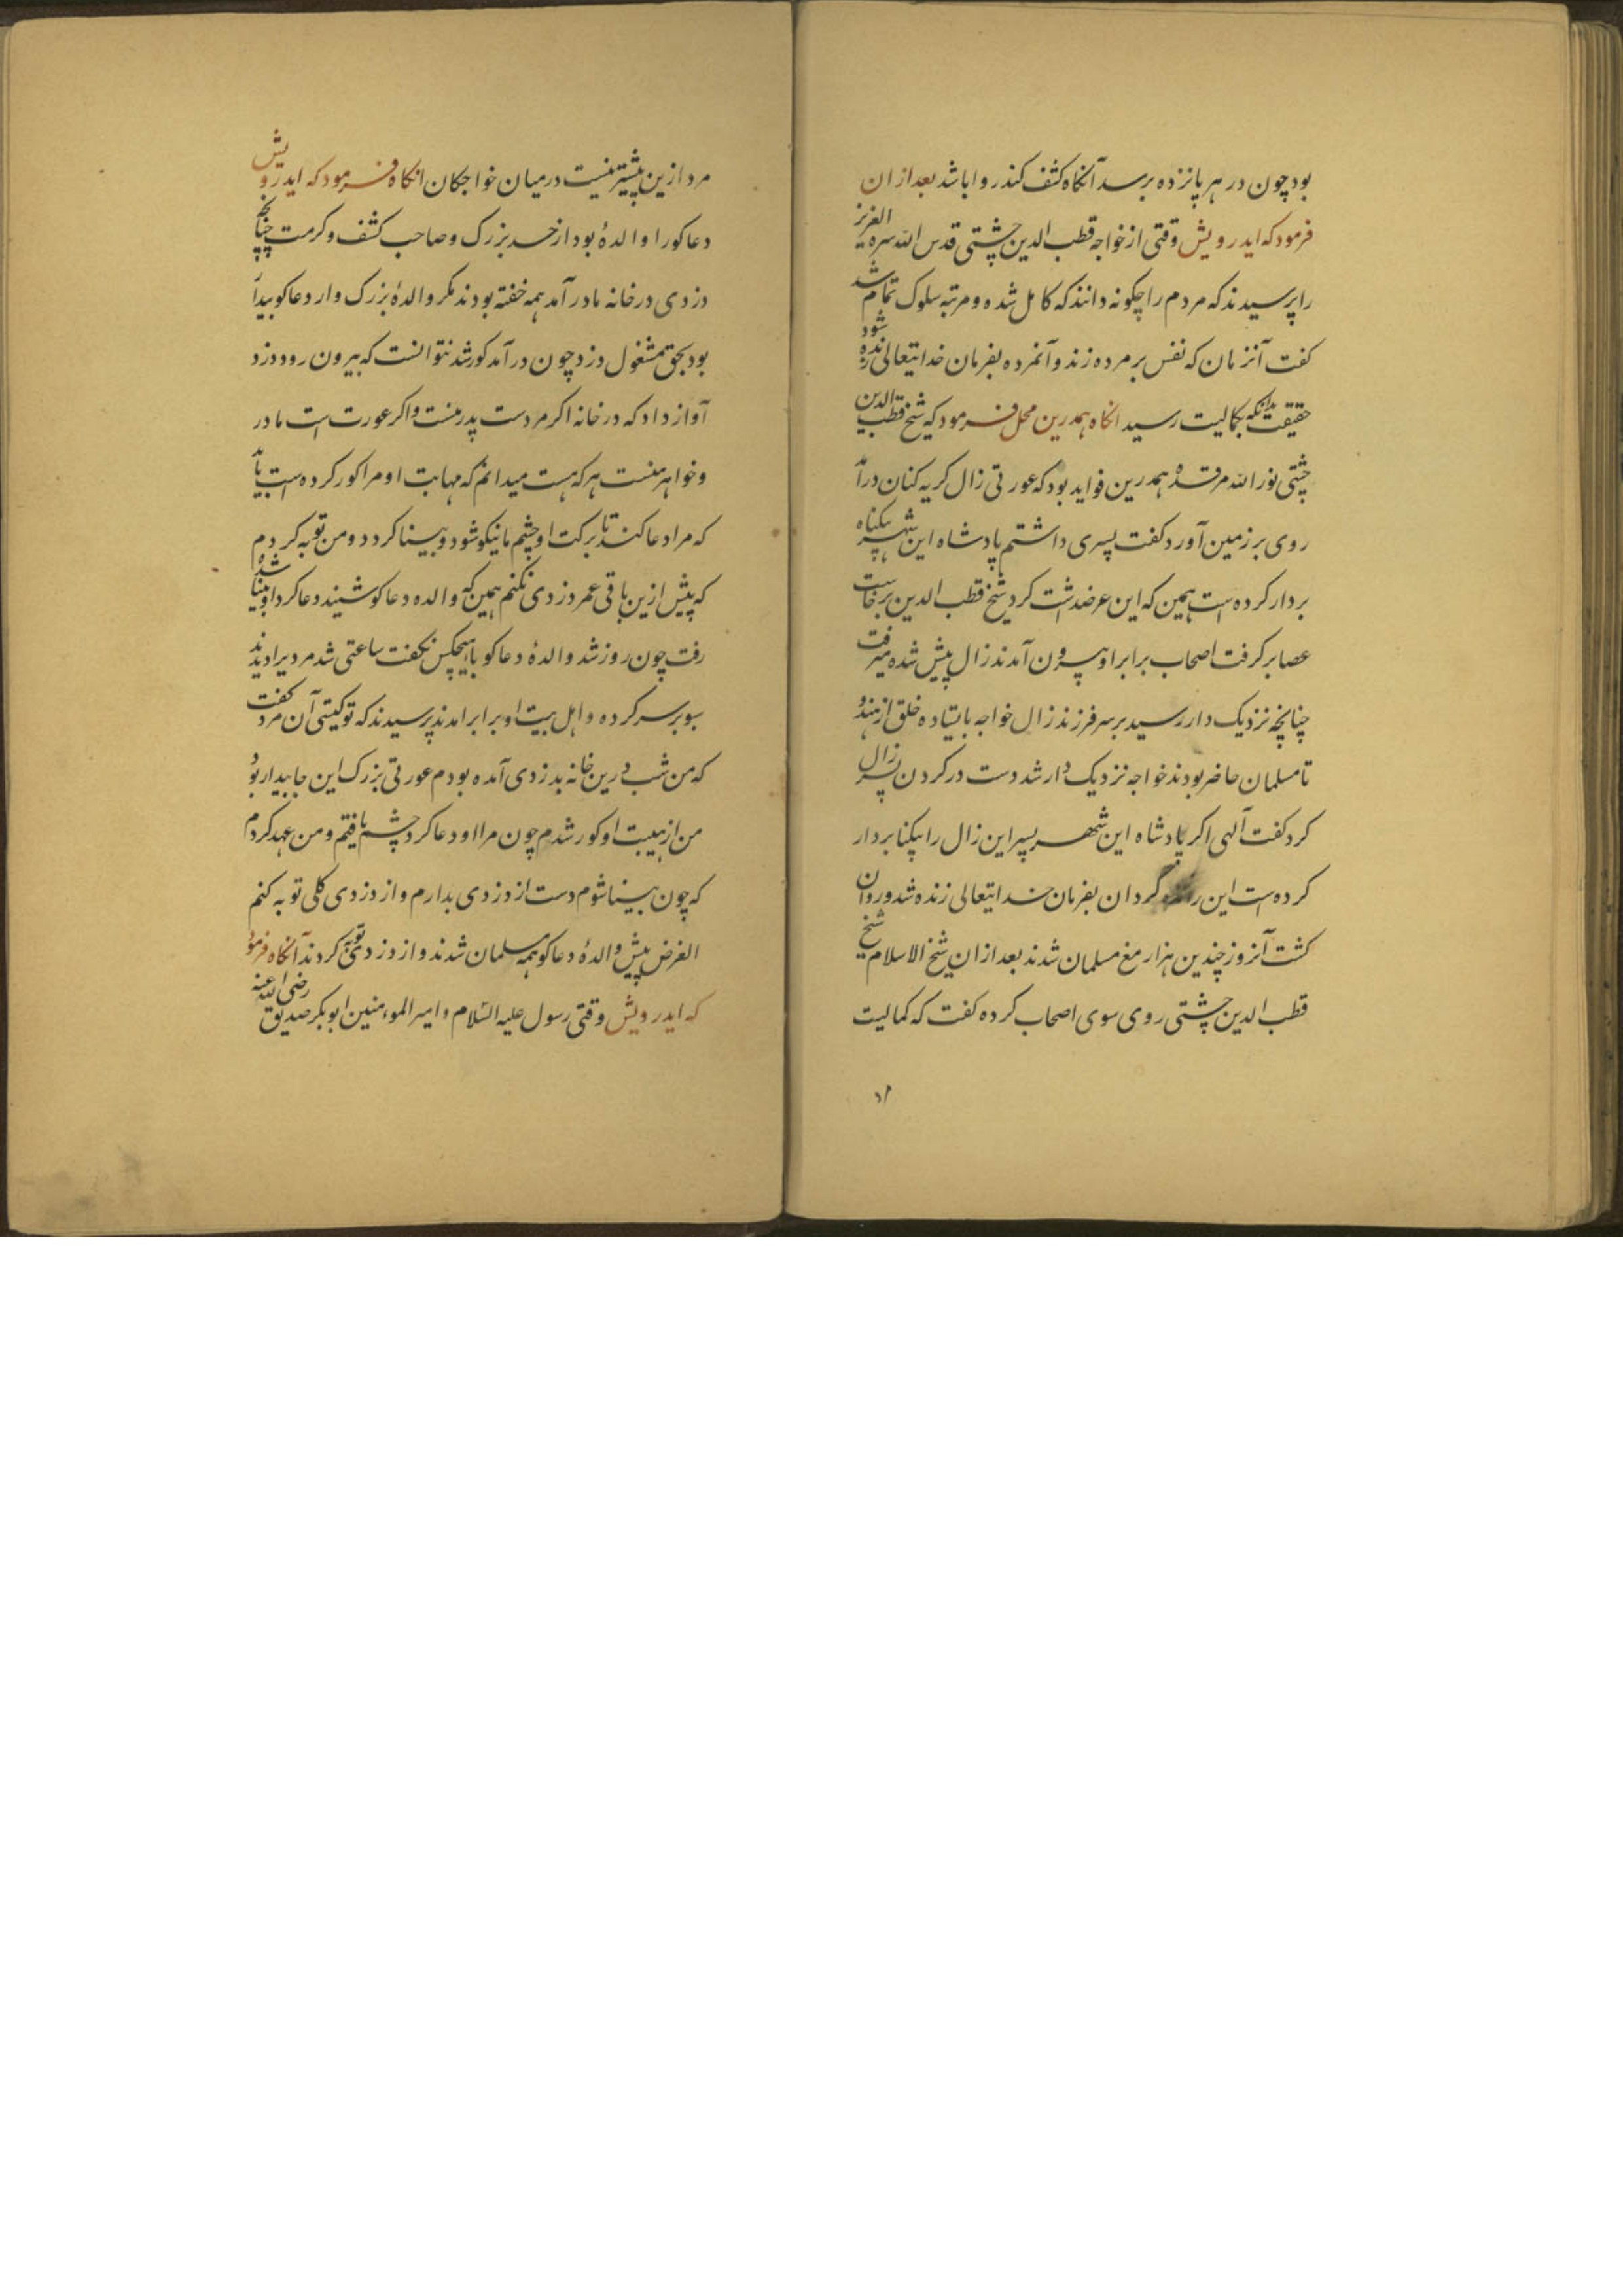 بود چون در هر پانزده برسد آنکاه کشف کند روا باشد بعد از ان
فرمود که ایدرویش وقتی از خواجه قطب الدین چشتی قدس الله سره العزیز
را پرسیدند که مردم را چکونه دانند که کامل شده و مرتبه سلوک تمام شد
کفت آنزمان که نفس بر مرده زند و آنمرده بفرمان خدایتعالی زنده شود
حقیقت بدانکه بکمالیت رسید انکاه همدرین محل فرمود که شیخ قطب الدین
چشتی نور الله مرقده همدرین فواید بود که عورتی زال کریه کنان درآمد
روی بر زمین آورد کفت پسری داشتم پادشاه این شهر بیکناه
بردار کرده است همین که این عرضداشت کرد شیخ قطب الدین برخاست
عصا برکرفت اصحاب برابر او بیرون آمدند زال پیش شده میرفت
چنانچه نزدیک دار رسید بر سر فرزند زال خواجه بایستاده خلق از هندو
تا مسلمان حاضر بودند خواجه نزدیک دار شد دست در کردن پسر زال
کرد کفت آلهی اکر پادشاه این شهر پسر این زال را بیکناه بردار
کرده است این را زنده گردان بفرمان خدایتعالی زنده شد و روان
کشت آنروز چندین هزار مغ مسلمان شدند بعد از ان شیخ الاسلام شیخ
قطب الدین چشتی روی سوی اصحاب کرده کفت که کمالیت
مرد ازین پیشتر نیست در میان خواجکان انکاه فرمود که ایدرویش
دعاکو را والدهٔ بود از حد بزرک و صاحب کشف و کرمت چنانچه
دزدی در خانه ما در آمد همه خفته بودند مکر والدهٔ بزرک وار دعاکو بیدار
بود بحق مشغول دزد چون در آمد کور شد نتوانست که بیرون رود دزد
آواز داد که در خانه اکر مردست پدر منست و اکر عورت است مادر
و خواهر منست هر که هست میدانم که مهابت او مرا کور کرده است باید
که مرا دعا کند تا ببرکت او چشم ما نیکو شود و بینا کردد و من توبه کردم
که پیش ازین باقی عمر دزدی نکنم همین که والده دعاکو شنید دعا کرد او بینا شده
رفت چون روز شد والدهٔ دعاکو با هیچکس نکفت ساعتی شد مردیرا دیدند
سبو بر سر کرده و اهل بیت او برابر امدند پرسیدند که تو کیستی آن مرد کفت
که من شب درین خانه بدزدی آمده بودم عورتی بزرک این جا بیدار بود
من از هیبت او کور شدم چون مرا او دعا کرد چشم یافتم و من عهد کردم
که چون بینا شوم دست از دزدی بدارم و از دزدی کلی توبه کنم
الغرض پیش والدهٔ دعاکو همه مسلمان شدند و از دزدی توبه کردند آنکاه فرمود
که ایدرویش وقتی رسول علیه السّلام و امیر المومنین ابوبکر صدیق رضی الله عنه